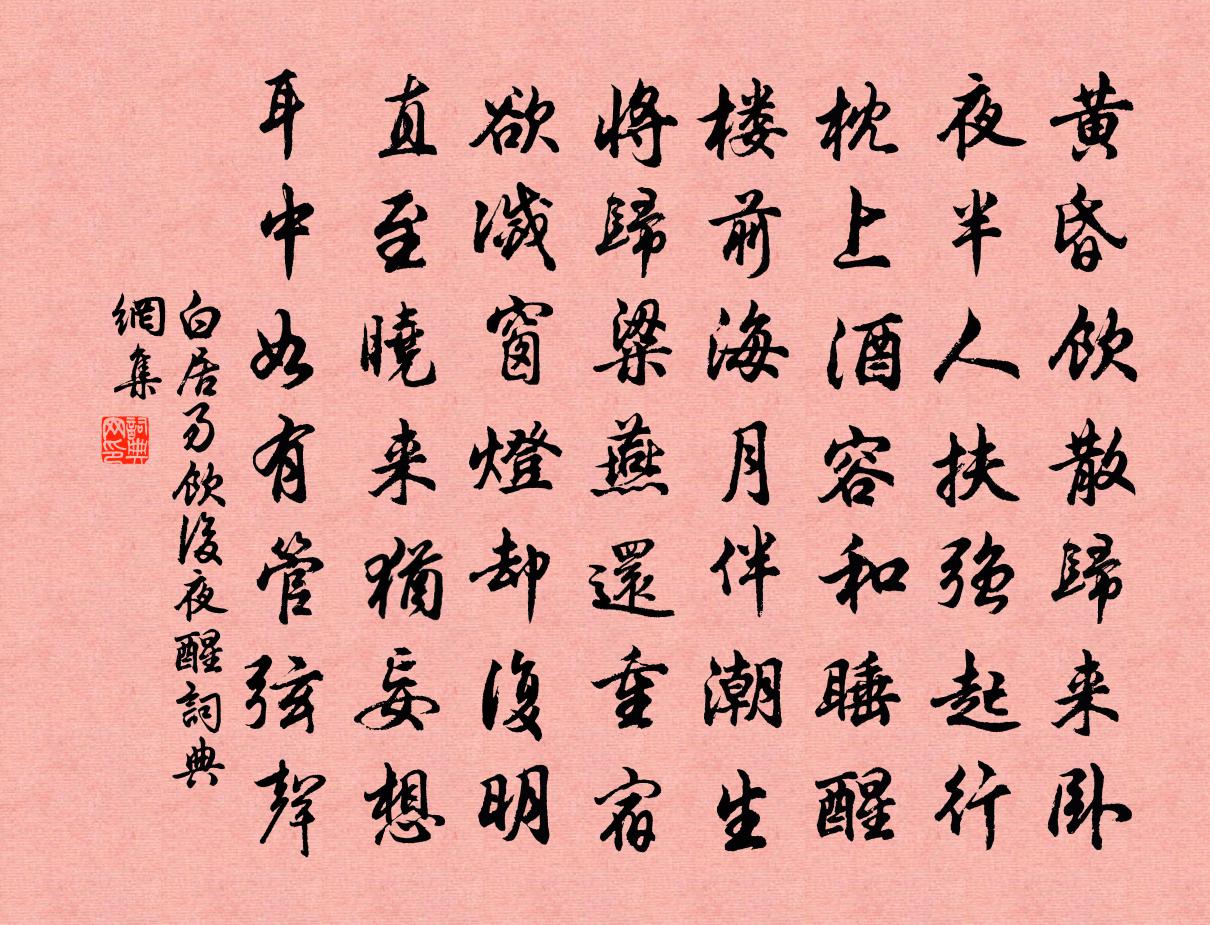 黄昏飲散歸来卧
夜半人扶强起行
枕上酒容和睡醒
楼前海月伴潮生
將歸梁燕還重宿
欲滅窗燈却復明
直至曉来猶妄想
耳中如有管弦聲
白居易飲後夜醒詞典
網集
詞典
网印